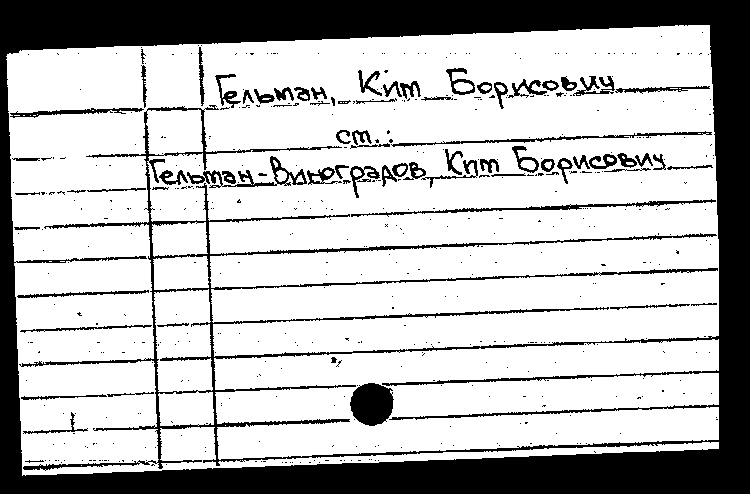 Гельман, Ким Борисович
см.:
Гельман-Виноградов, Ким Борисович